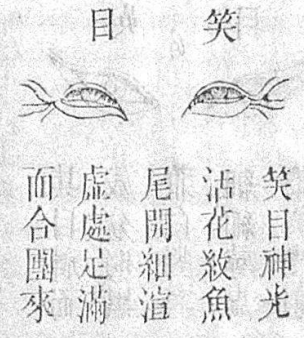 笑目
笑目神光
沾花紋魚
尾開細
虛處足滿
面合團來